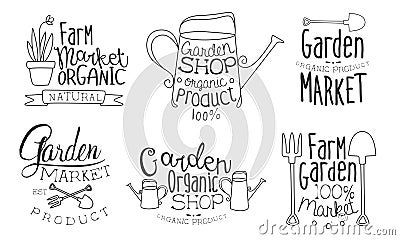 Farm
Market
ORGANIC
NATURAL
Garden
SHOP
organic
Product
100%
Garden
ORGANIC PRODUCT
MARKET
Garden
MARKET
EST
PRODUCT
Garden
Organic
SHOP
ORGANIC PRODUCT
Farm
Garden
100%
Market